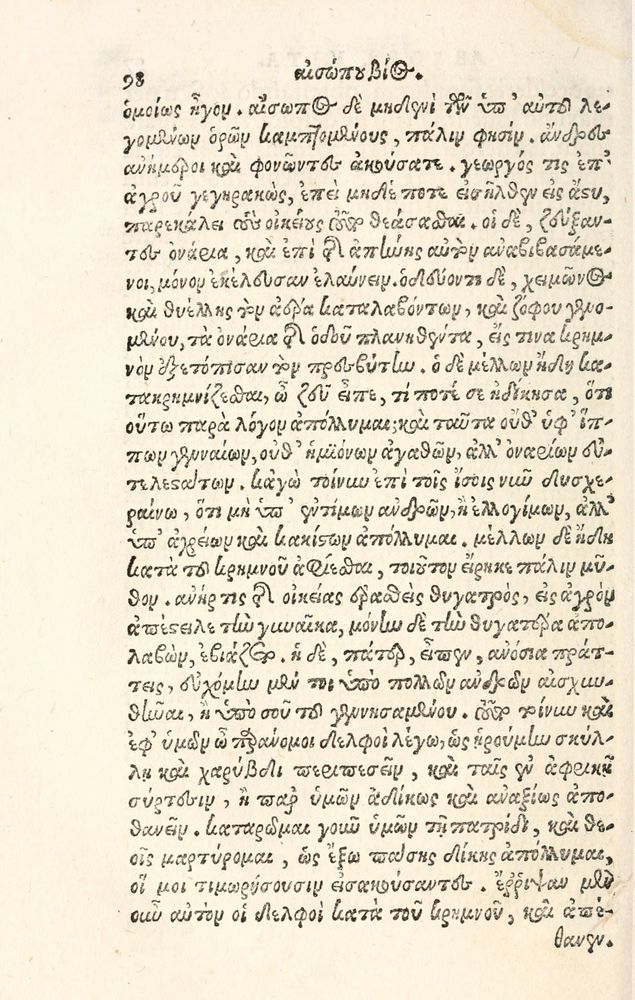 98
αἰσώπου βίος.
ὁμοίως ἦγον. αἴσωπος δὲ μηδενὶ τῶν ὑπ' αὐτοῦ λε-
γομένων ὁρῶν καμπτομένους, πάλιν φησίν. ἄνδρες
ἀνήμεροι καὶ φονῶντες ἀκούσατε. γεωργός τις ἐπ'
ἀγροῦ γεγηρακὼς, ἐπεὶ μηδέποτε εἰσῆλθεν εἰς ἄστυ,
παρεκάλει τοὺς οἰκείους τοῦτο θεάσασθαι. οἱ δὲ, ζεύξαν-
τες ὀνάρια, καὶ ἐπὶ τῆς ἀπήνης αὐτὸν ἀναβιβασάμε-
νοι, μόνον ἐκέλευσαν ἐλαύνειν. ὁδεύοντι δὲ, χειμῶνος
καὶ θυέλλης τὸν ἀέρα καταλαβόντων, καὶ ζόφου γενο-
μένου, τὰ ὀνάρια τῆς ὁδοῦ πλανηθέντα, εἴς τινα κρημ-
νὸν ἐξετόπισαν τὸν πρεσβύτην. ὁ δὲ μέλλων ἤδη κα-
τακρημνίζεσθαι, ὦ ζεῦ εἶπε, τί ποτέ σε ἠδίκησα, ὅτι
οὕτω παρὰ λόγον ἀπόλλυμαι; καὶ ταῦτα οὔθ' ὑφ' ἵπ-
πων γενναίων, οὔθ' ἡμϊόνων ἀγαθῶν, ἀλλ' ὀναρίων εὐ-
τελεστάτων. κἀγὼ τοίνυν ἐπὶ τοῖς ἴσοις νῦν δυσχε-
ραίνω, ὅτι μὴ ὑπ' ἐντίμων ἀνδρῶν, ἢ ἐλλογίμων, ἀλλ'
ὑπ' ἀχρείων καὶ κακίστων ἀπόλλυμαι. μέλλων δὲ ἤδη
κατὰ τοῦ κρημνοῦ ἀφίεσθαι, τοιοῦτον εἴρηκε πάλιν μῦ-
θον. ἀνήρ τις τῆς οἰκείας ἐρασθεὶς θυγατρὸς, εἰς ἀγρὸν
ἀπέστειλε τὴν γυναῖκα, μόνην δὲ τὴν θυγατέρα ἀπο-
λαβὼν, ἐβιάζετο. ἡ δὲ, πάτερ, εἶπεν, ἀνόσια πράτ-
τεις, εὐχόμην μέν τοι ὑπὸ πολλῶν ἀνδρῶν αἰσχυν-
θῆναι, ἢ ὑπὸ σοῦ τοῦ γεννησαμένου. τοῦτο τοίνυν καὶ
ἐφ' ὑμῶν ὦ παράνομοι δελφοὶ λέγω, ὡς ᾑρούμην σκύλ-
λῃ καὶ χαρύβδι περιπεσεῖν, καὶ ταῖς ἐν ἀφρικῇ
σύρτεσιν, ἢ παρ' ὑμῶν ἀδίκως καὶ ἀναξίως ἀπο-
θανεῖν. καταρῶμαι γοῦν ὑμῶν τῇ πατρίδι, καὶ θε-
οῖς μαρτύρομαι, ὡς ἔξω πάσης δίκης ἀπόλλυμαι,
οἵ μοι τιμωρήσουσιν εἰσακούσαντες. ἔῤῥιψαν μὲν
οὖν αὐτὸν οἱ δελφοὶ κατὰ τοῦ κρημνοῦ, καὶ ἀπέ-
θανεν.